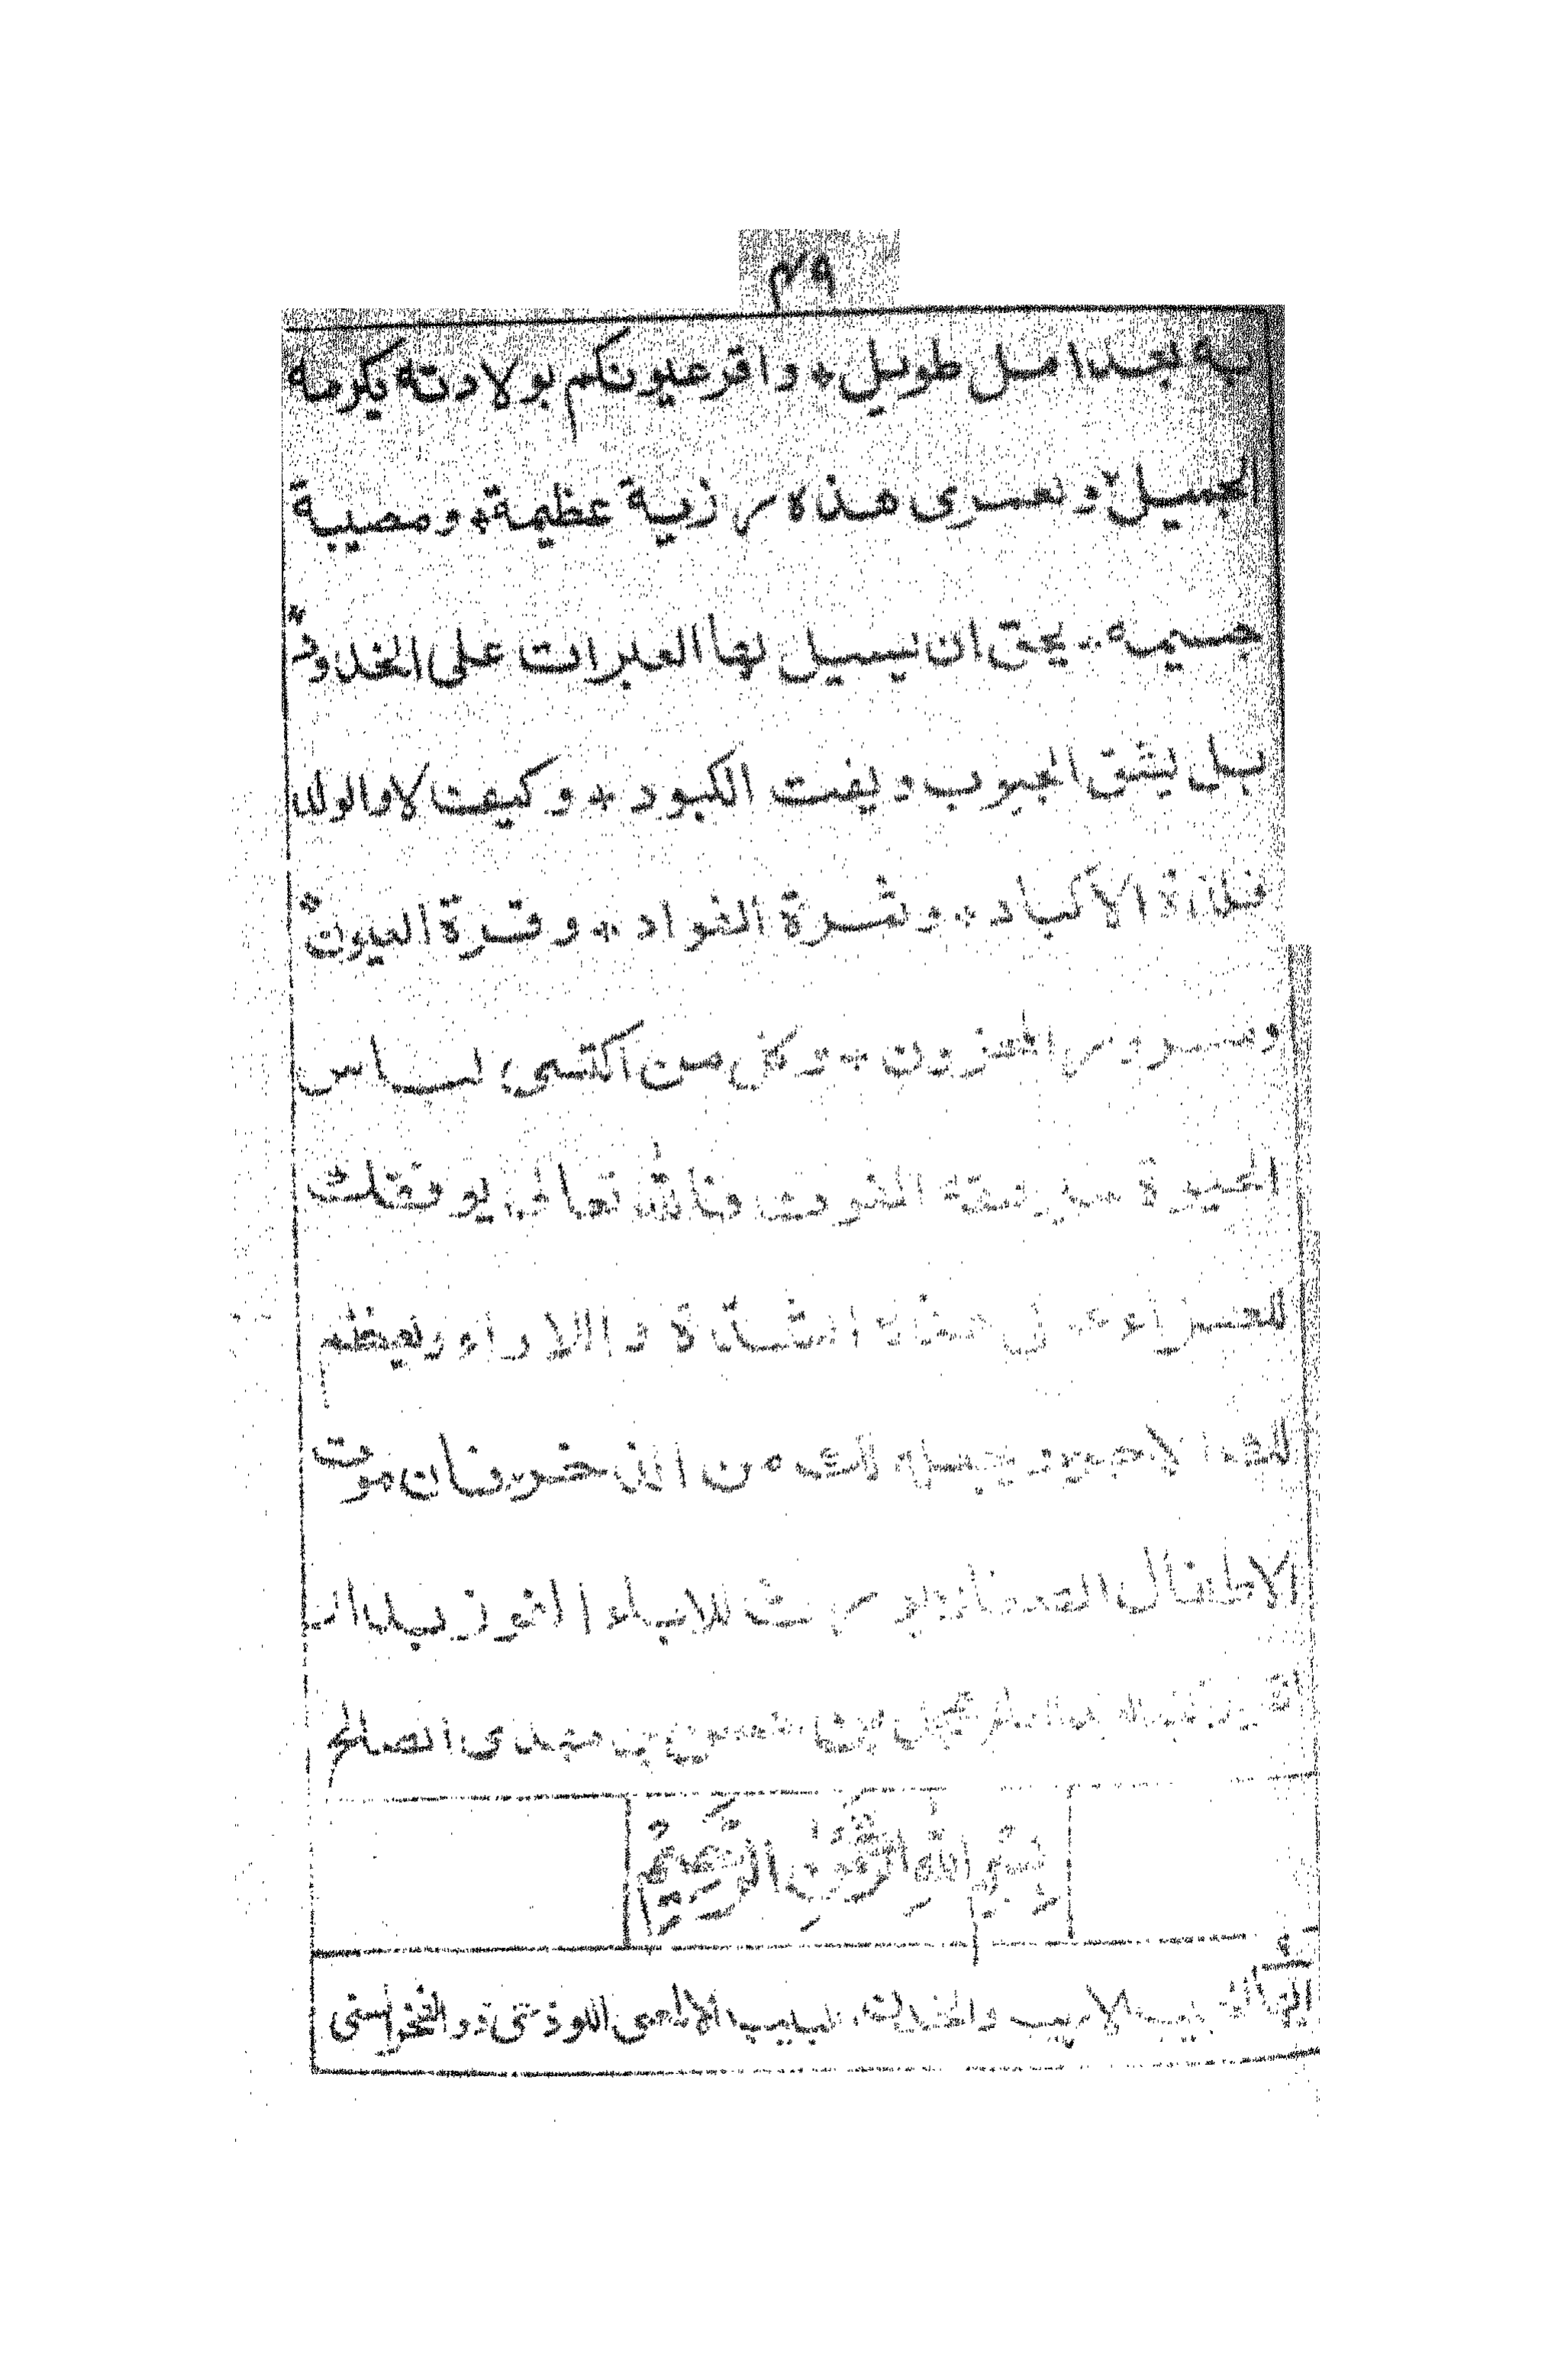 ٤٩
به بعد امل طويل * واقر عيونكم بولادته بكرمه
الجميل * ولعمرى هذه رزية عظيمة * ومصيبة
جسيمه * يحق ان يسيل لها العبرات على الخدود *
بل يشق الجيوب ويفت الكبود * وكيف لا والولد
فلذة الاكباد * وثمرة الفواد * وقرة العيون *
وسرور المحزون * وكل من اكتسى لباس
الحيوة الموت فالله تعالى يوفقك
للعزاء فى هذه الشدة والاواء ويعظم
لك الاجر ويجعله لك من الذخر فان موت
الاطفال يورث للاباء الفوز
مهدى الصالح
بسم الله الرحمن الرحيم
الاريب اللبيب الالمعى اللوذعى ذو الفخر السنى